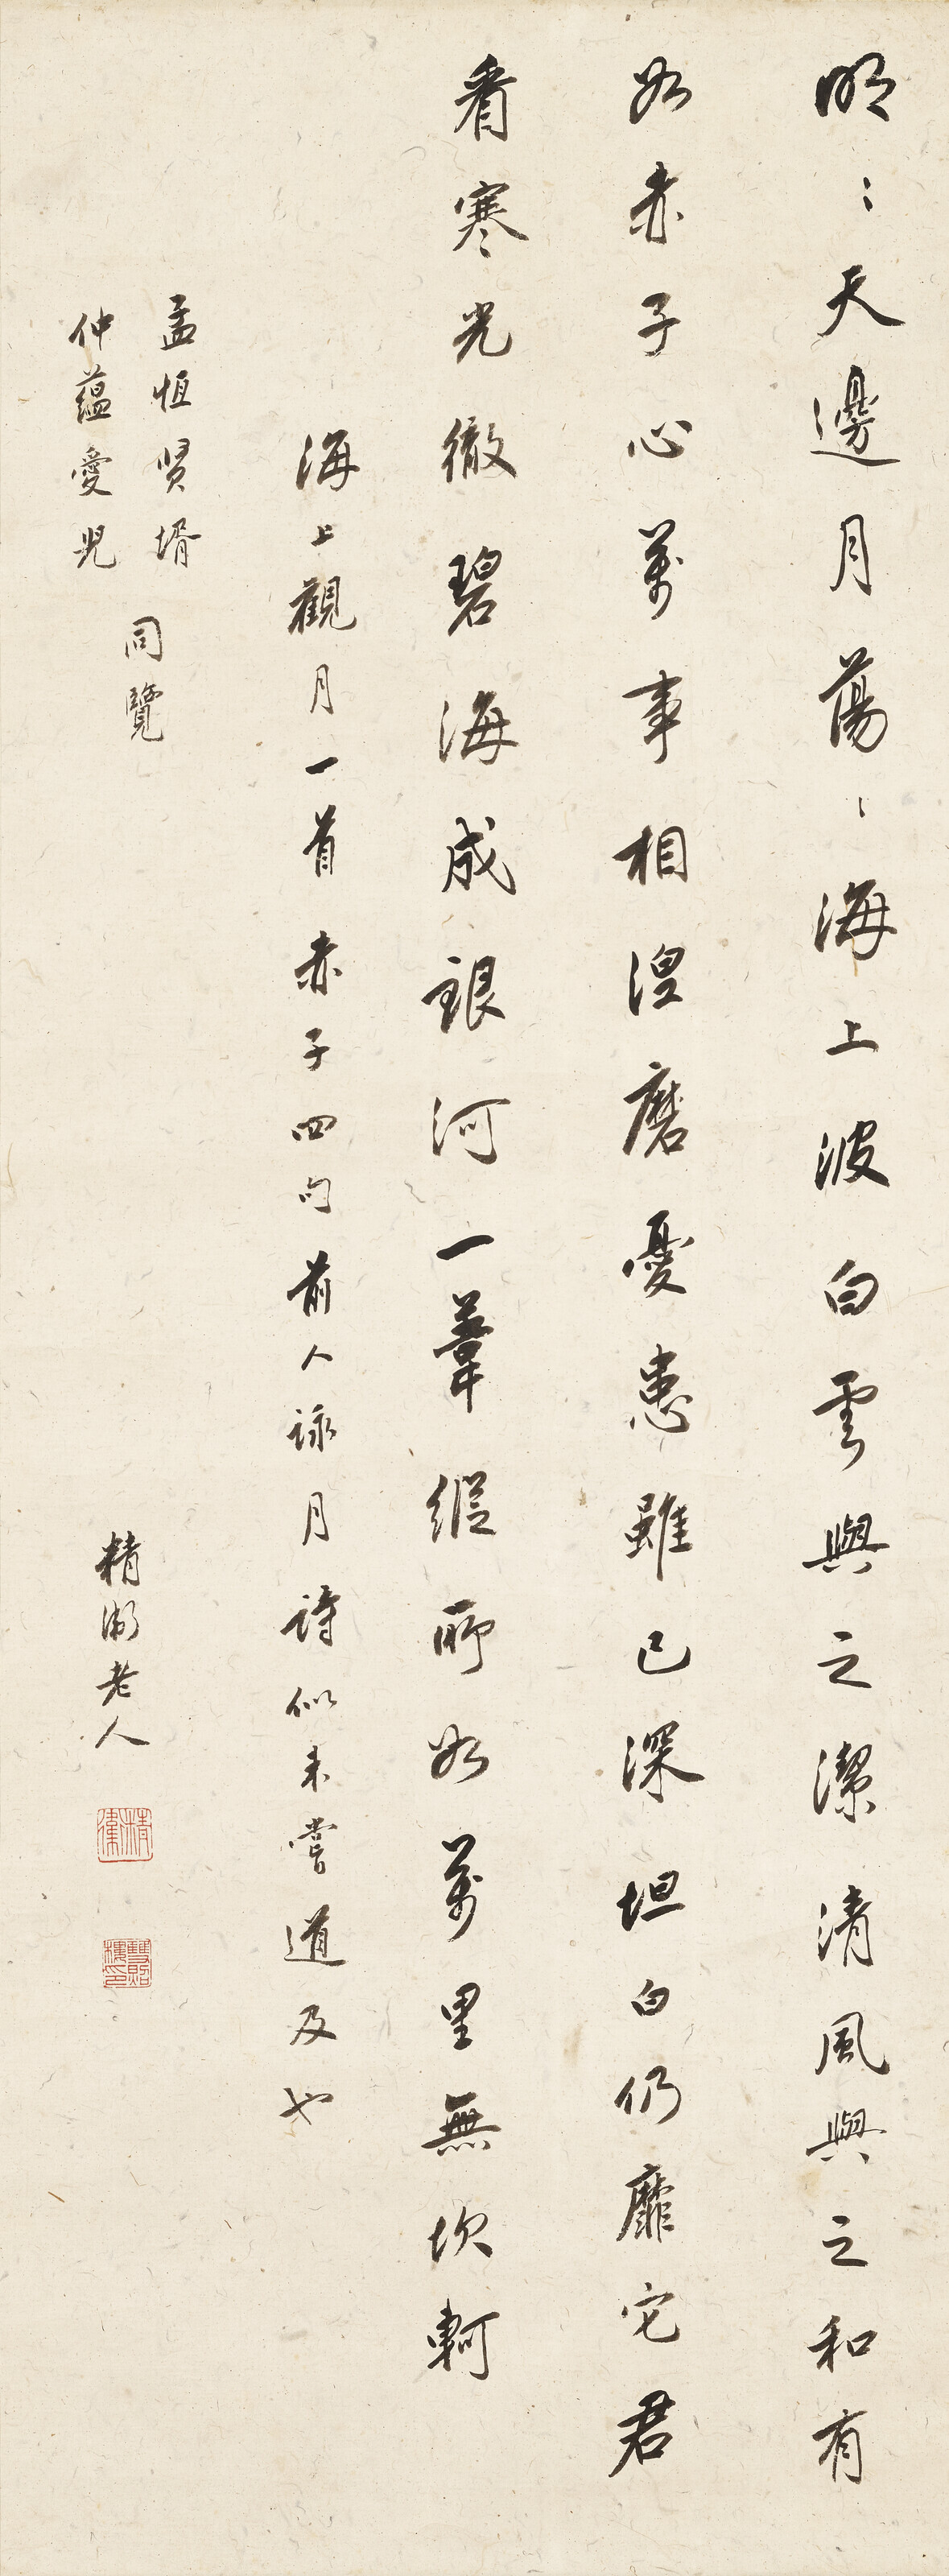 明〻天邊月蕩〻海上波白雲與之潔清風與之和有
如赤子心萬事相涅磨憂患雖已深坦白仍靡它君
看寒光徹碧海成銀河一葦縱所如萬里無坎軻
海上觀月一首赤子四句前人詠月詩似未嘗道及也
孟恒賢壻
仲蘊愛兒
同覽
精衛老人
精衛
雙照樓印